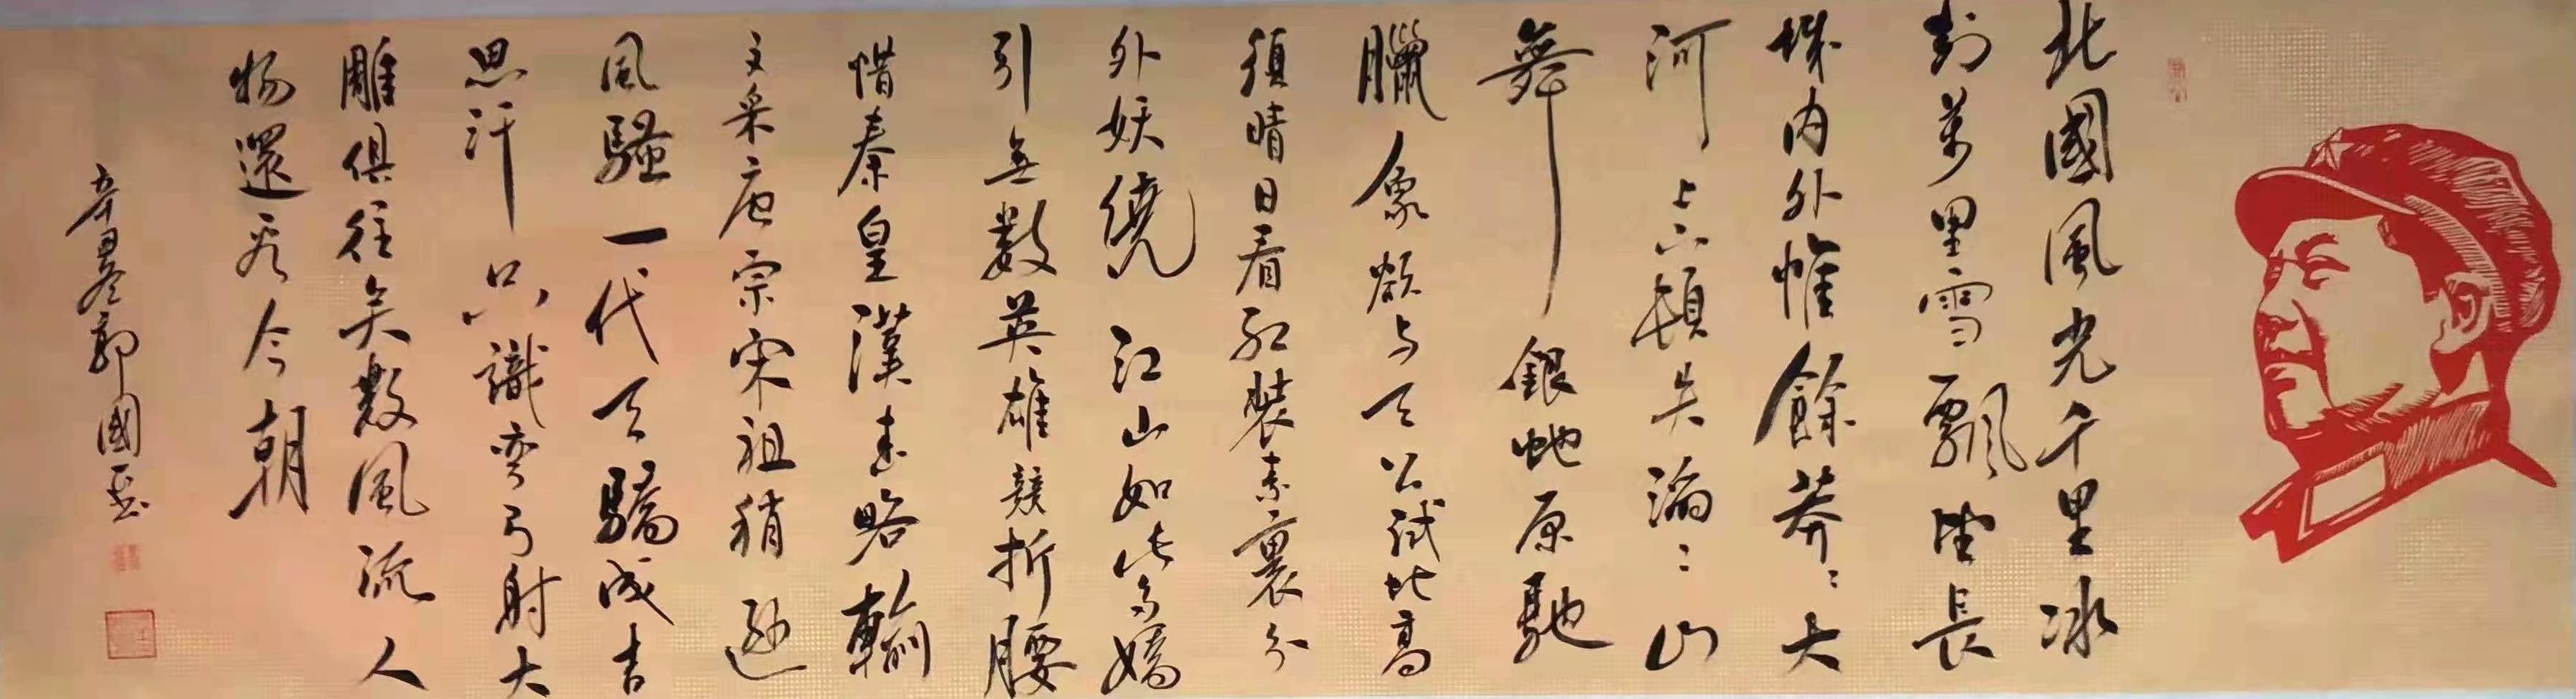 北國風光千里冰
封萬里雪飄望長
城内外惟餘莽〻大
河上下頓失滔〻山
舞銀蛇原馳
臘象欲与天公試比高
須晴日看紅装素裹分
外妖繞江山如此多嬌
引無數英雄競折腰
惜秦皇漢武略輸
文采唐宗宋祖稍遜
風騷一代天驕成吉
思汗只識弯弓射大
雕俱往矣數風流人
物還看今朝
辛丑冬郭國